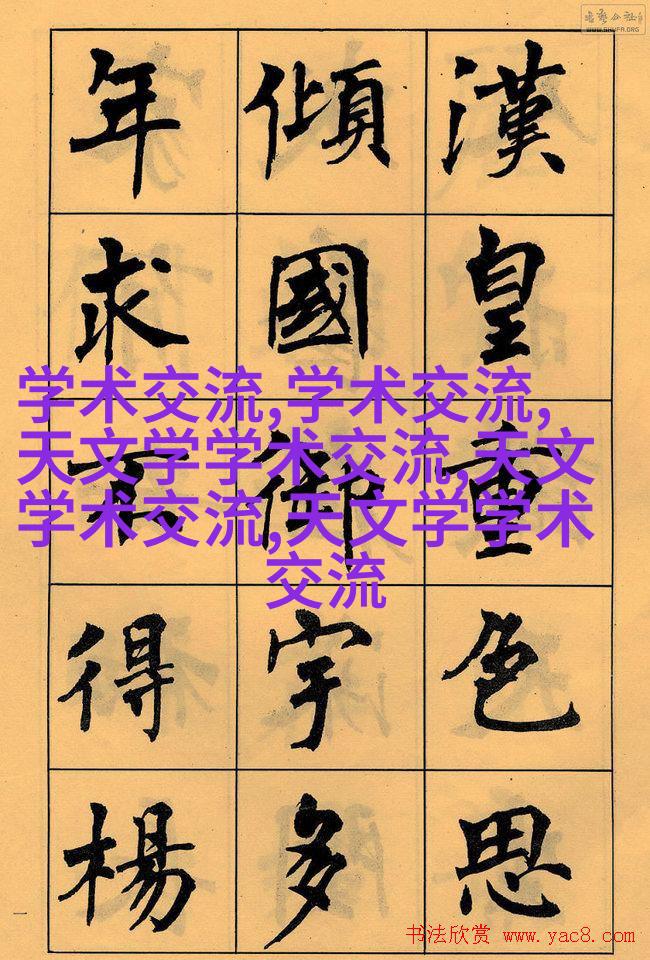 漢皇重色思
傾國御宇多
年求不得楊
学术交流,学术交流,
天文学学术交流,天文
学术交流,天文学学术
交流
一
书法欣赏 www.yac8.com
WWW.SHUFA.ORG